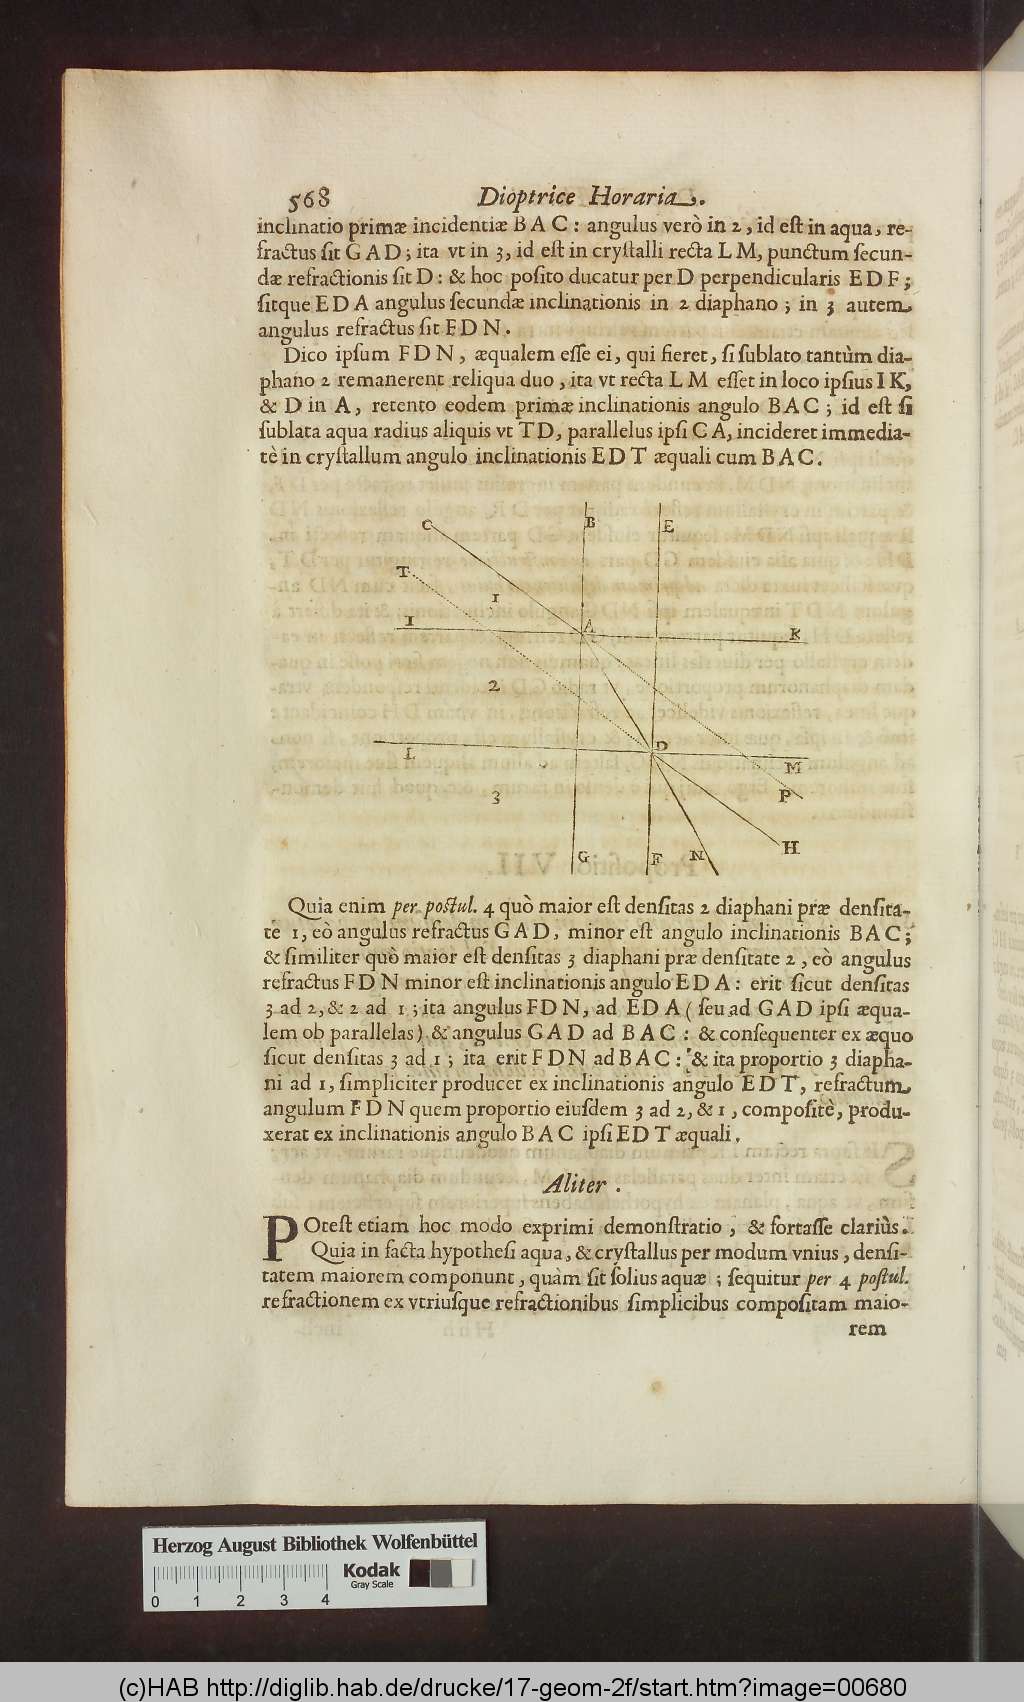 568 Dioptrice Horaria.
inclinatio primæ incidentiæ B A C : angulus verò in 2, id eſt in aqua, re-
fractus ſit G A D ; ita vt in 3, id eſt in cryſtalli recta L M, punctum ſecun-
dæ refractionis ſit D : & hoc poſito ducatur per D perpendicularis E D F ;
ſitque E D A angulus ſecundæ inclinationis in 2 diaphano ; in 3 autem
angulus refractus ſit F D N .
Dico ipſum F D N , æqualem eſſe ei, qui fieret, ſi ſublato tantùm dia-
phano 2 remanerent reliqua duo , ita vt recta L M eſſet in loco ipſius I K,
& D in A , retento eodem primæ inclinationis angulo B A C ; id eſt ſi
ſublata aqua radius aliquis vt T D, parallelus ipſi C A, incideret immedia-
tè in cryſtallum angulo inclinationis E D T æquali cum B A C .
C B E
T
1
I A K
2
D
L M
3 P
H
G F N
Quia enim per poſtul. 4 quò maior eſt denſitas 2 diaphani præ denſita-
te 1, eò angulus refractus G A D, minor eſt angulo inclinationis B A C ;
& ſimiliter quò maior eſt denſitas 3 diaphani præ denſitate 2 , eò angulus
refractus F D N minor eſt inclinationis angulo E D A : erit ſicut denſitas
3 ad 2, & 2 ad 1 ; ita angulus F D N , ad E D A ( ſeu ad G A D ipſi æqua-
lem ob parallelas ) & angulus G A D ad B A C : & conſequenter ex æquo
ſicut denſitas 3 ad 1 ; ita erit F D N ad B A C : & ita proportio 3 diapha-
ni ad 1, ſimpliciter producet ex inclinationis angulo E D T , refractum
angulum F D N quem proportio eiuſdem 3 ad 2, & 1 , compoſitè, produ-
xerat ex inclinationis angulo B A C ipſi E D T æquali .
Aliter .
POteſt etiam hoc modo exprimi demonſtratio , & fortaſſe clariùs .
Quia in facta hypotheſi aqua, & cryſtallus per modum vnius , denſi-
tatem maiorem componunt , quàm ſit ſolius aquæ ; ſequitur per 4 poſtul.
refractionem ex vtriuſque refractionibus ſimplicibus compoſitam maio-
rem
Herzog August Bibliothek Wolfenbüttel
Kodak
Gray Scale
0 1 2 3 4
(c)HAB http://diglib.hab.de/drucke/17-geom-2f/start.htm?image=00680